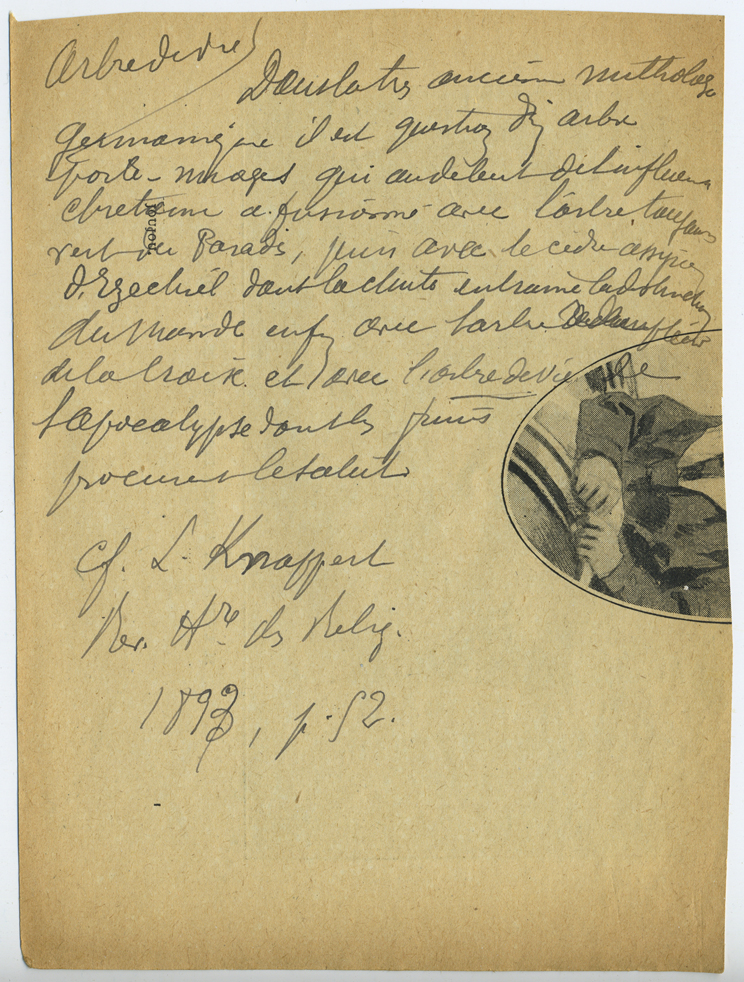 Arbre de vie
Dans la très ancienne mitholog
germanique il est question d'un arbre
porte-nuages qui au debut de l'influence
chretienne a fusionné avec l'arbre toujours
vert du Paradis, puis avec le cèdre assyrien
d'Ezechiel dont la chute entraine la destruction
du monde enfin avec l'arbre
de la Croix et avec l'arbre de vie de
l'Apocalypse dont les fruits
procurent le salut
cf. L. Knappert
Rev. Hre des Relig.
189 , p. 52.